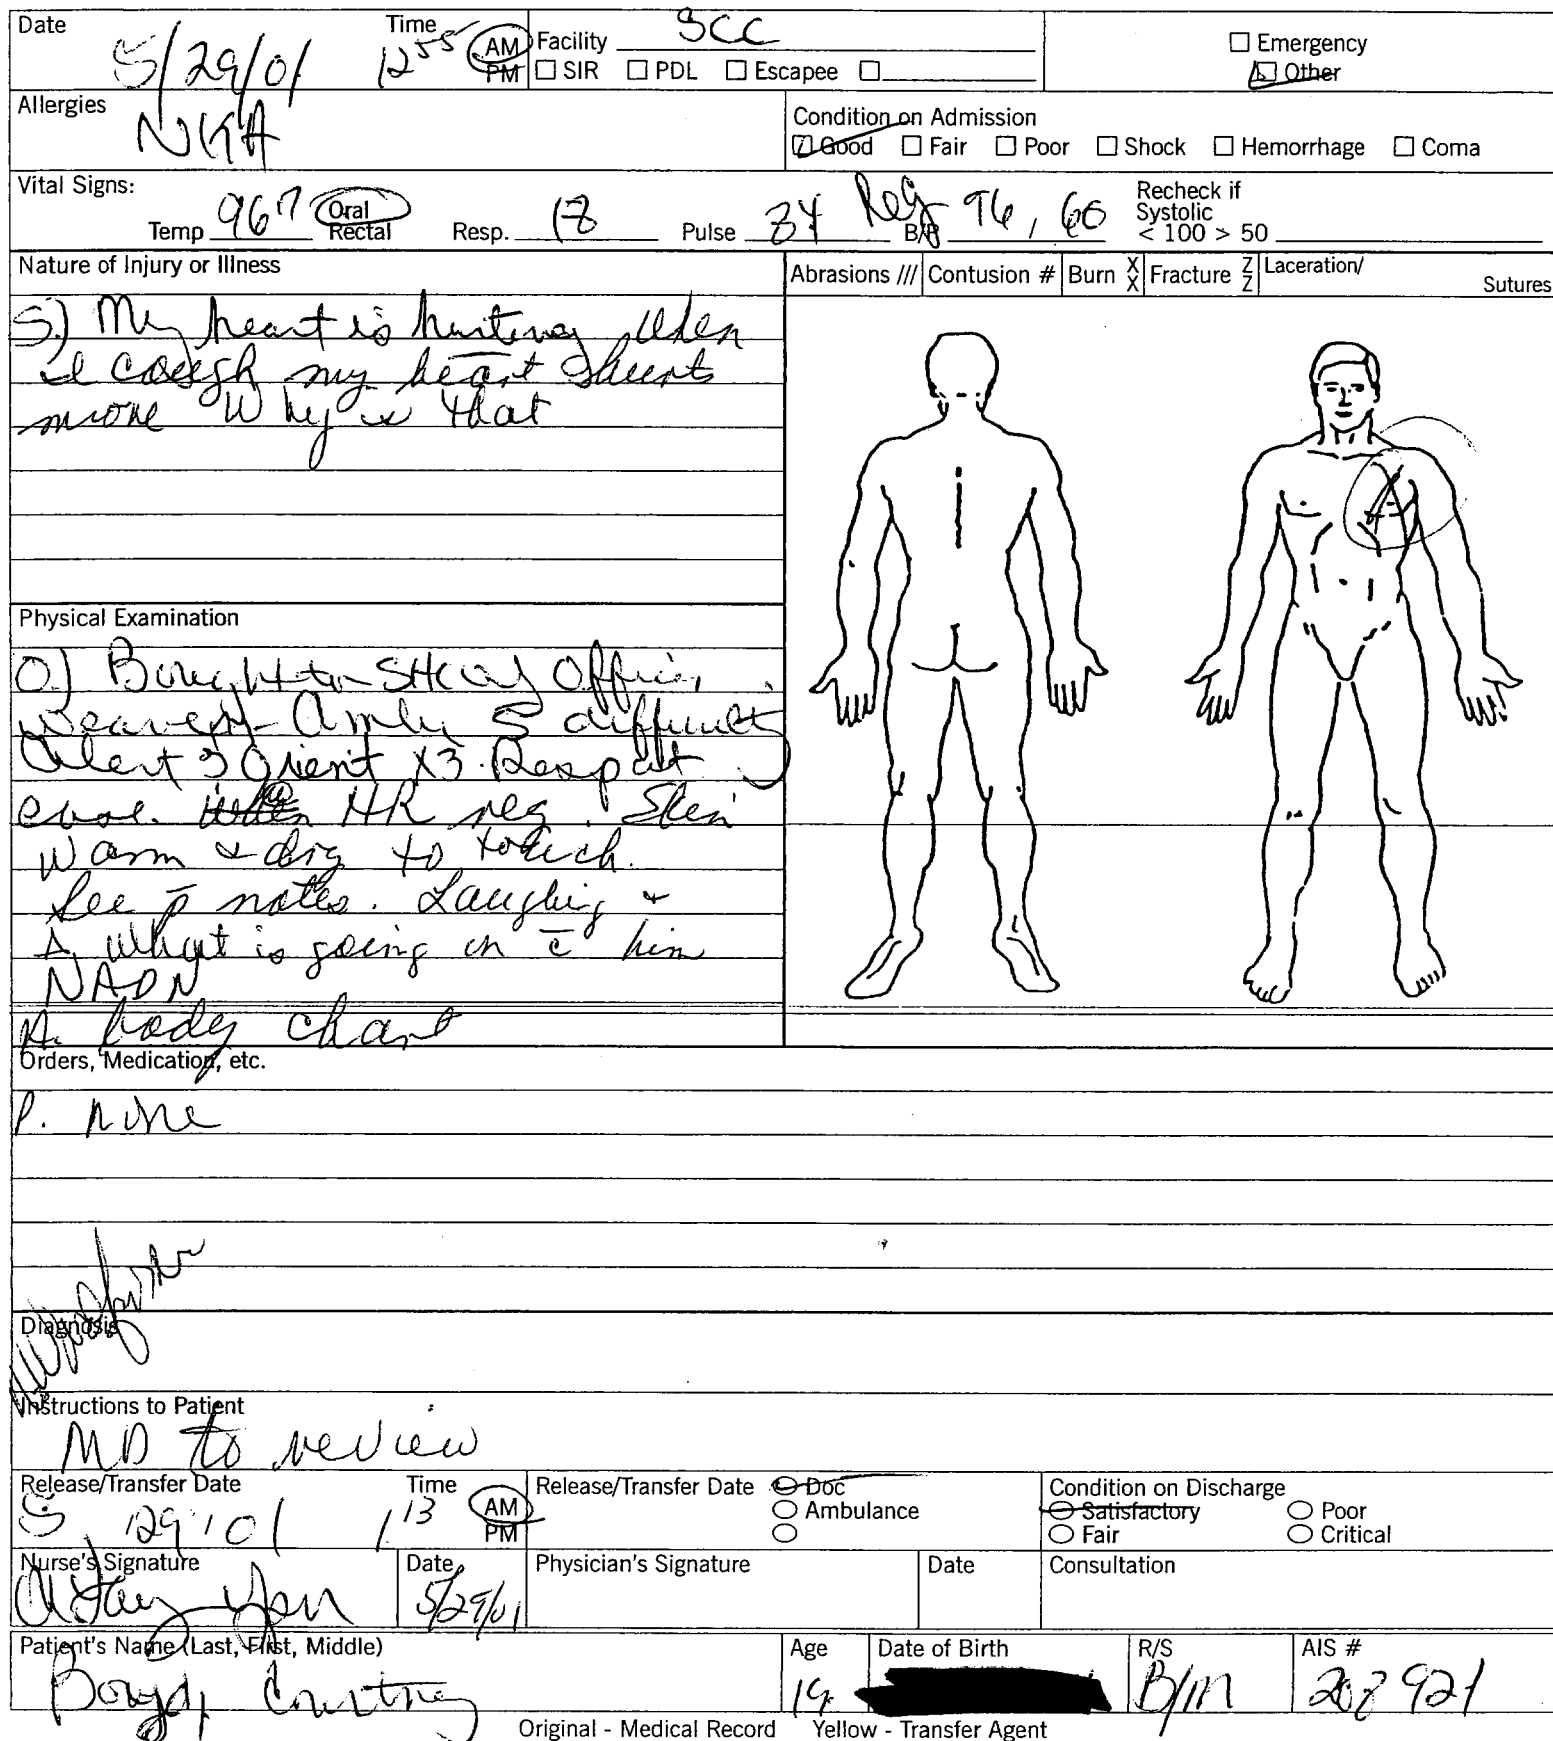 Date Time Facility SCC
5/29/01 12 55 AM PM ☐ SIR ☐ PDL ☐ Escapee ☐
☐ Emergency
☐ Other
Allergies
NKA
Condition on Admission
☐ Good ☐ Fair ☐ Poor ☐ Shock ☐ Hemorrhage ☐ Coma
Vital Signs:
Temp 967 Oral Rectal Resp. 18 Pulse 84 Reg B/P 96, 60
Recheck if
Systolic
< 100 > 50
Nature of Injury or Illness
Abrasions /// Contusion # Burn X X Fracture Z Z Laceration/ Sutures
S.) My heart is hurting when
I cough my heart
more Why is that
Physical Examination
O.) to SHCU Officer
Alert & Orient X3. Resp
HR reg. Skin
warm & dry to touch.
See p̄ notes. Laughing &
what is going on c̄ him
NADN
A. body chart
Orders, Medication, etc.
P. none
Diagnosis
Instructions to Patient
MD to review
Release/Transfer Date Time
5 29 01 1 13 AM PM
Release/Transfer Date Doc
Ambulance
Condition on Discharge
Satisfactory Poor
Fair Critical
Nurse's Signature
Date
5/29/01
Physician's Signature Date Consultation
Patient's Name (Last, First, Middle)
Courtney
Age
19
Date of Birth
R/S
B/m
AIS #
207921
Original - Medical Record Yellow - Transfer Agent